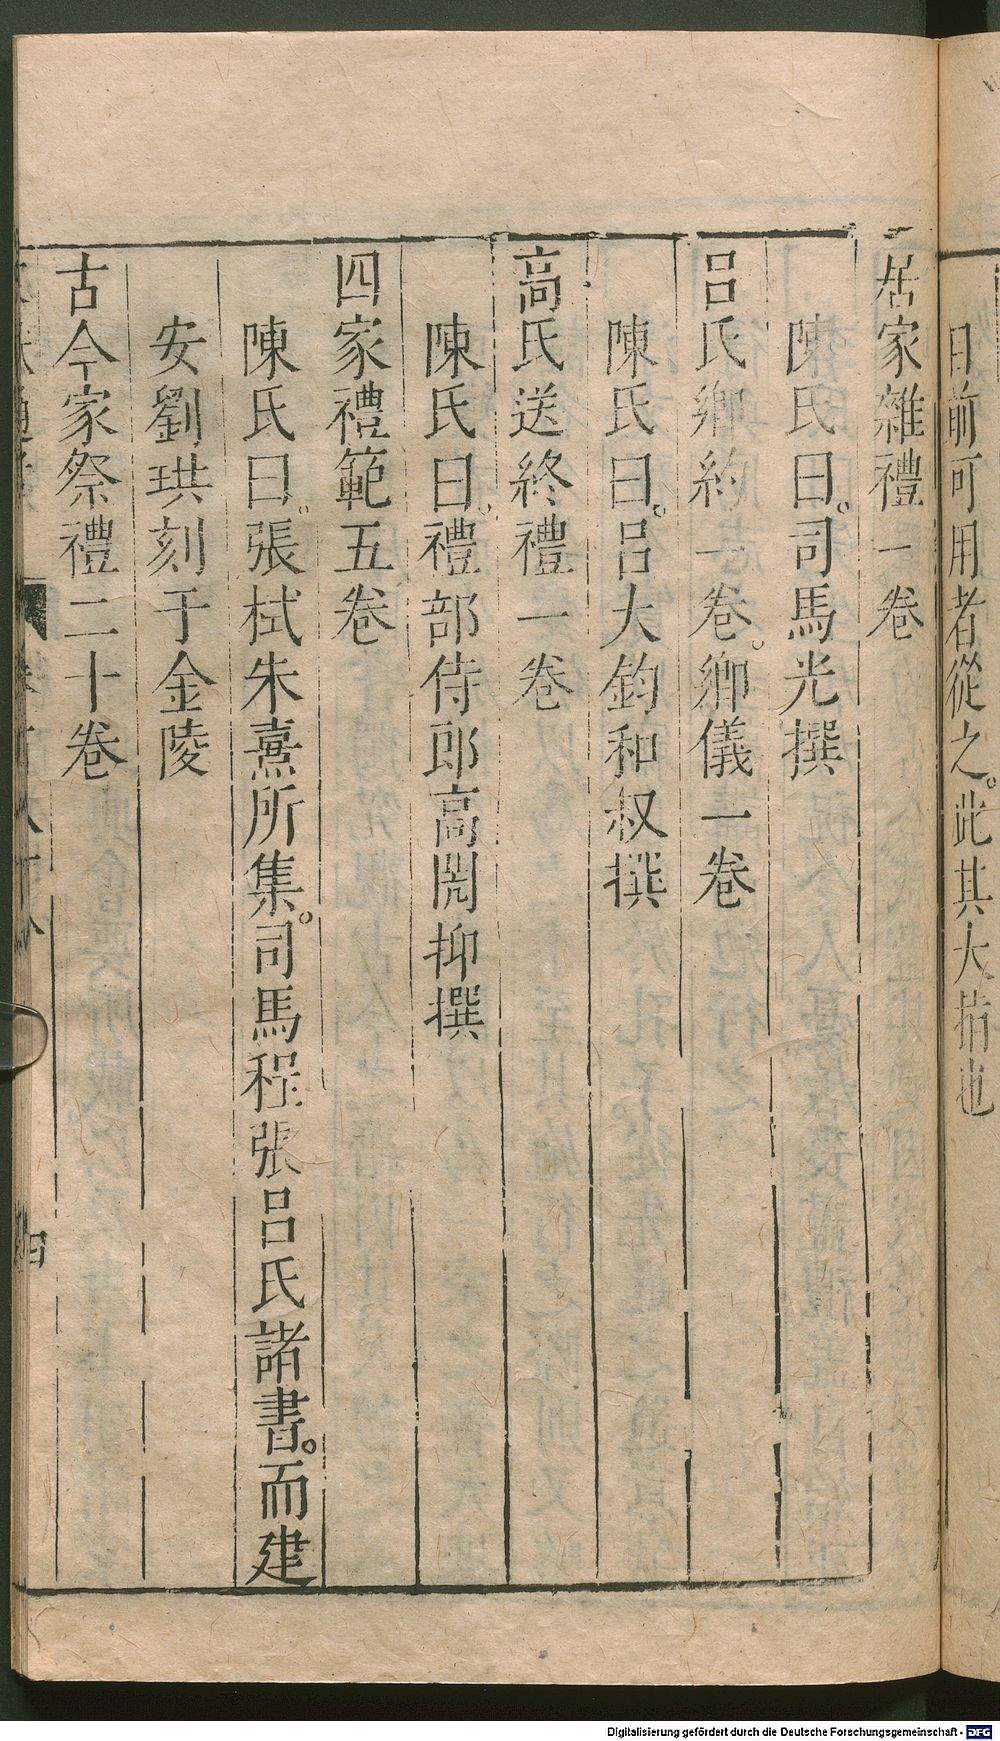 日前可用者從之。此其大指也
居家雜禮一卷
陳氏曰。司馬光撰
呂氏鄉約一卷。鄉儀一卷
陳氏曰。呂大鈞和叔撰
高氏送終禮一卷
陳氏曰。禮部侍郎高閌抑撰
四家禮範五卷
陳氏曰。張栻朱熹所集。司馬程張呂氏諸書。而建
安劉珙刻于金陵
古今家祭禮二十卷
四
Digitalisierung gefördert durch die Deutsche Forschungsgemeinschaft - DFG